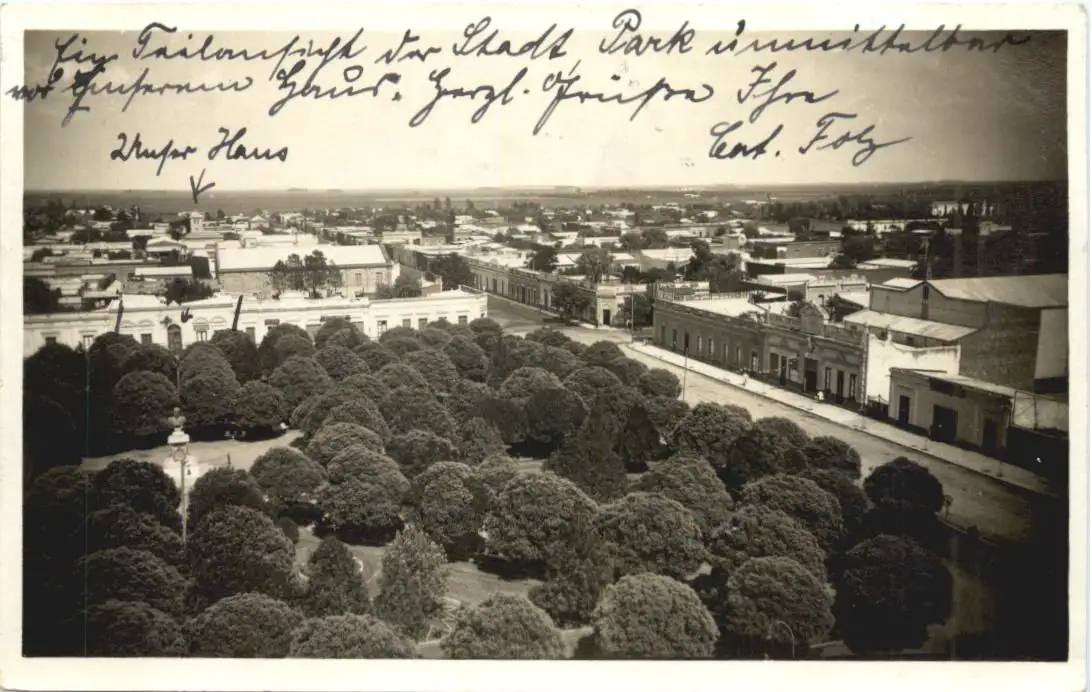 Ein Teilansicht der Stadt, Park unmittelbar
vor Unserem Haus. Herzl. Grüße Ihre
Unser Haus
Folz